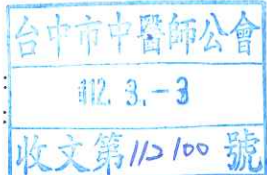 台中市中醫師公會
112. 3. -3
收文第112100號